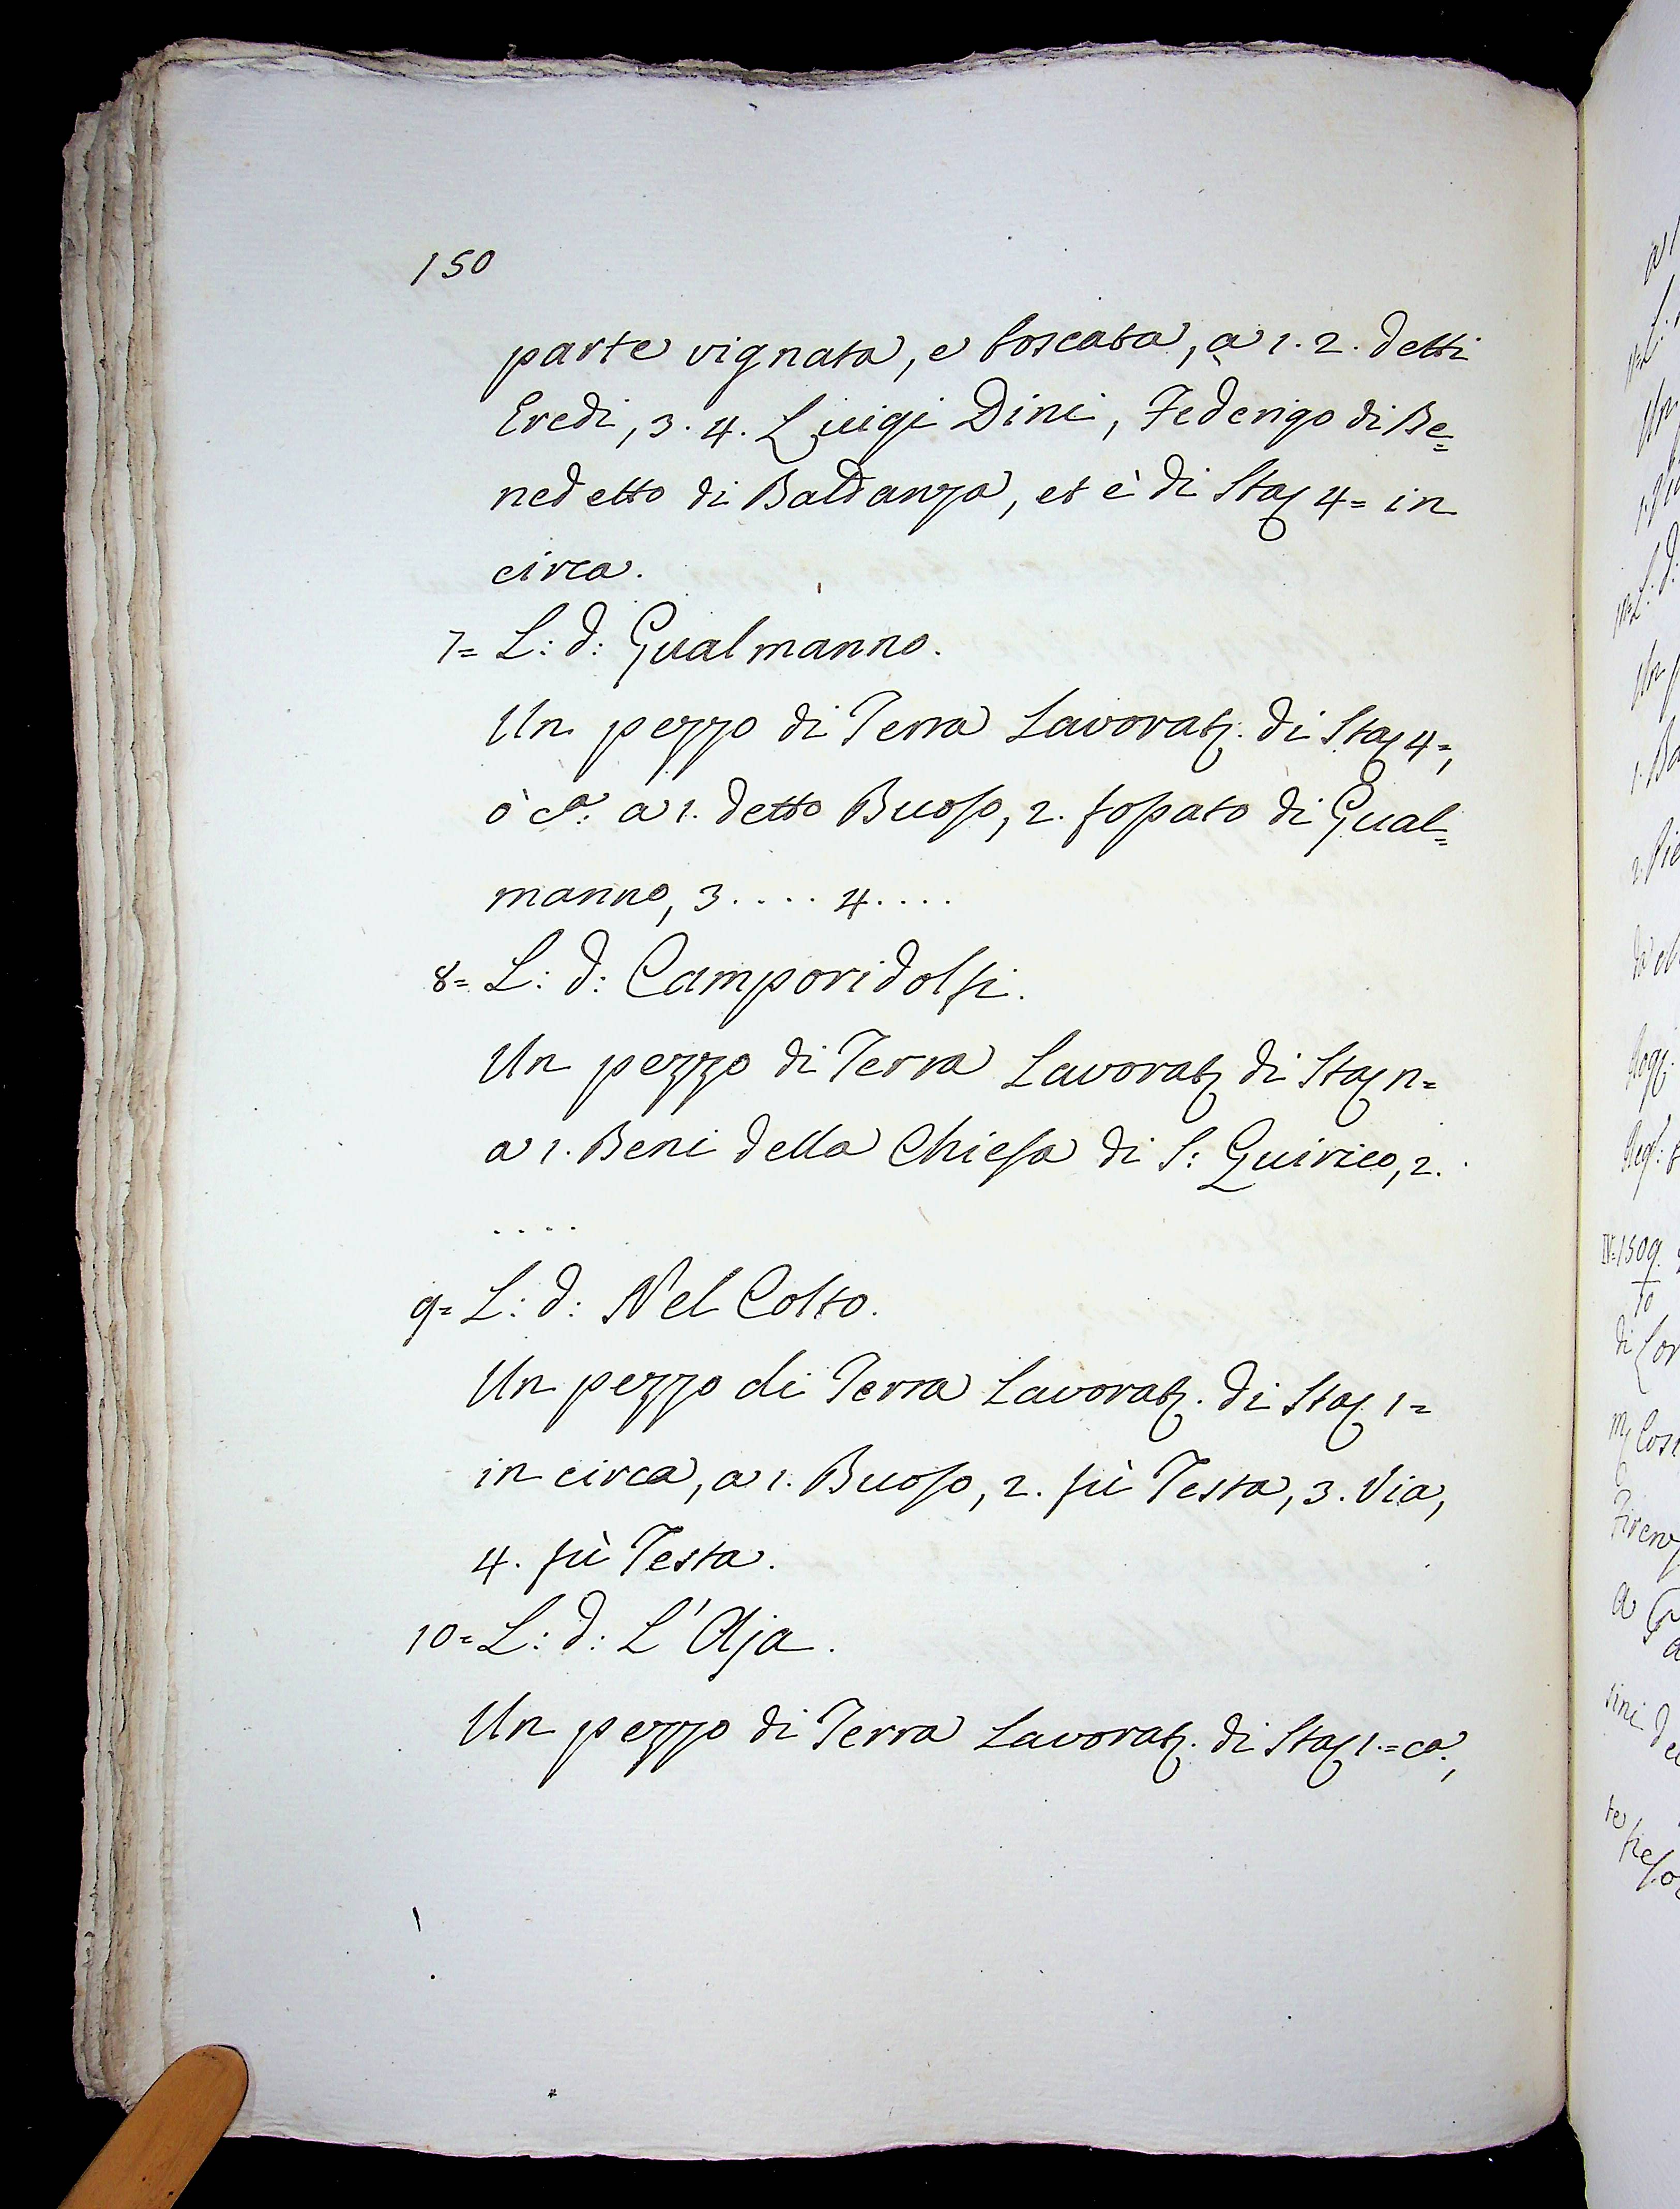 150
parte vignata, e boscata, a 1. 2. detti
Eredi, 3. 4. Luigi Dini, Federigo di Be=
nedetto di Baldanza, et è di Staj 4= in
circa.
7= L: d: Gualmanno.
Un pezzo di Terra Lavorat. di Staj 4=,
ò c.ª: a 1. detto Buoso, 2. fossato di Gual=
manno, 3.... 4....
8= L: d: Camporidolfi.
Un pezzo di Terra Lavorat di Staj n=
a 1. Beni della Chiesa di S: Quirico, 2.
....
9= L: d: Nel Colto.
Un pezzo di Terra Lavorat. di Staj 1=
in circa, a 1. Buoso, 2. fù Testa, 3. Via,
4. fù Testa.
10= L: d: L'Aja.
Un pezzo di Terra Lavorat. di Staj 1.= ca.,